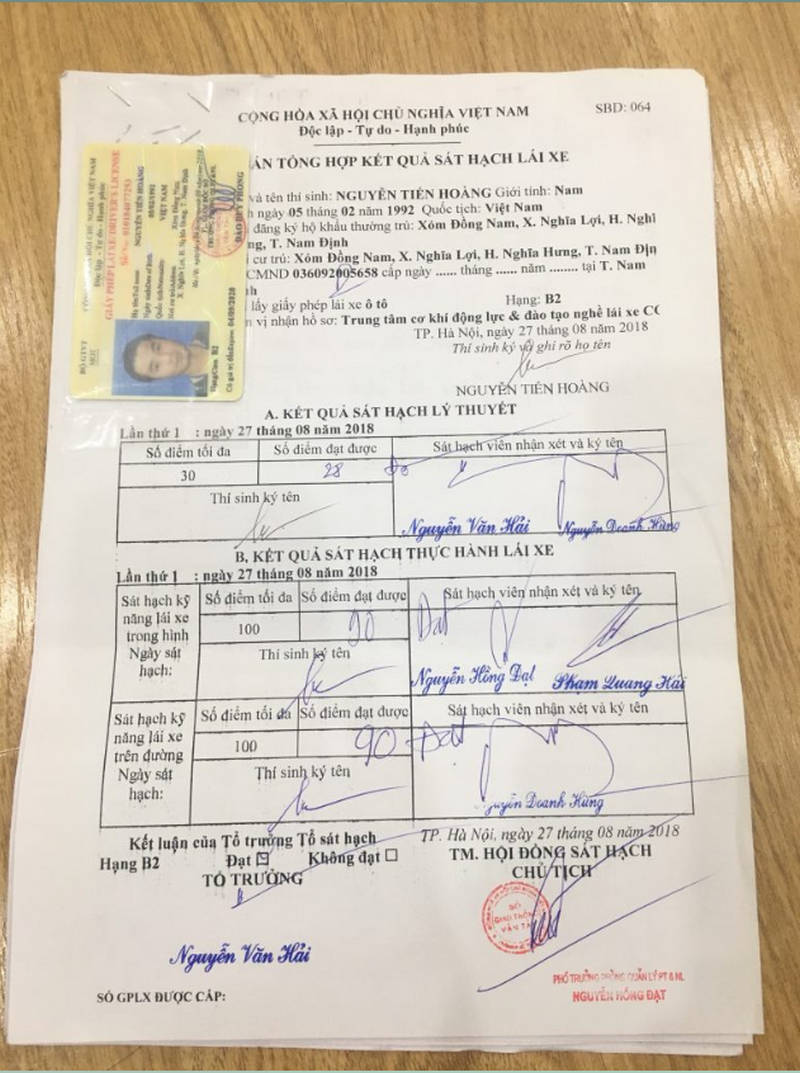 CỘNG HÒA XÃ HỘI CHỦ NGHĨA VIỆT NAM
SBD: 064
Độc lập - Tự do - Hạnh phúc
TỔNG HỢP KẾT QUẢ SÁT HẠCH LÁI XE
và tên thí sinh: NGUYỄN TIẾN HOÀNG Giới tính: Nam
ngày 05 tháng 02 năm 1992 Quốc tịch: Việt Nam
đăng ký hộ khẩu thường trú: Xóm Đồng Nam, X. Nghĩa Lợi, H. Nghĩ
T. Nam Định
cư trú: Xóm Đồng Nam, X. Nghĩa Lợi, H. Nghĩa Hưng, T. Nam Địn
CMND 036092005658 cấp ngày ...... tháng ...... năm ........ tại T. Nam
lấy giấy phép lái xe ô tô
Hạng: B2
vị nhận hồ sơ: Trung tâm cơ khí động lực & đào tạo nghề lái xe
TP. Hà Nội, ngày 27 tháng 08 năm 2018
Thí sinh ký và ghi rõ họ tên
NGUYỄN TIẾN HOÀNG
GIẤY PHÉP LÁI XE/DRIVER'S LICENSE
NGUYỄN TIẾN HOÀNG
05/02/1992
VIỆT NAM
Xóm Đồng Nam,
X. Nghĩa Lợi, H. Nghĩa Hưng, T. Nam Định
ĐÀO DUY PHONG
BỘ GTVT
Hạng/Class B2
04/09/2028
A. KẾT QUẢ SÁT HẠCH LÝ THUYẾT
Lần thứ 1 : ngày 27 tháng 08 năm 2018
Số điểm tối đa
Số điểm đạt được
Sát hạch viên nhận xét và ký tên
30
28
Thí sinh ký tên
Nguyễn Văn Hải
Nguyễn Doanh Hùng
B. KẾT QUẢ SÁT HẠCH THỰC HÀNH LÁI XE
Lần thứ 1 : ngày 27 tháng 08 năm 2018
Sát hạch kỹ
năng lái xe
trong hình
Ngày sát
hạch:
Số điểm tối đa
Số điểm đạt được
Sát hạch viên nhận xét và ký tên
100
90
Đạt
Thí sinh ký tên
Nguyễn Hồng Đạt
Phạm Quang Hải
Sát hạch kỹ
năng lái xe
trên đường
Ngày sát
hạch:
Số điểm tối đa
Số điểm đạt được
Sát hạch viên nhận xét và ký tên
100
90
Đạt
Thí sinh ký tên
Nguyễn Doanh Hùng
Kết luận của Tổ trưởng Tổ sát hạch
Hạng B2
Đạt
Không đạt
TỔ TRƯỞNG
TP. Hà Nội, ngày 27 tháng 08 năm 2018
TM. HỘI ĐỒNG SÁT HẠCH
CHỦ TỊCH
SỞ
GIAO THÔNG
VẬN TẢI
Nguyễn Văn Hải
PHÓ TRƯỞNG PHÒNG QUẢN LÝ PT & NL
NGUYỄN HỒNG ĐẠT
SỐ GPLX ĐƯỢC CẤP: